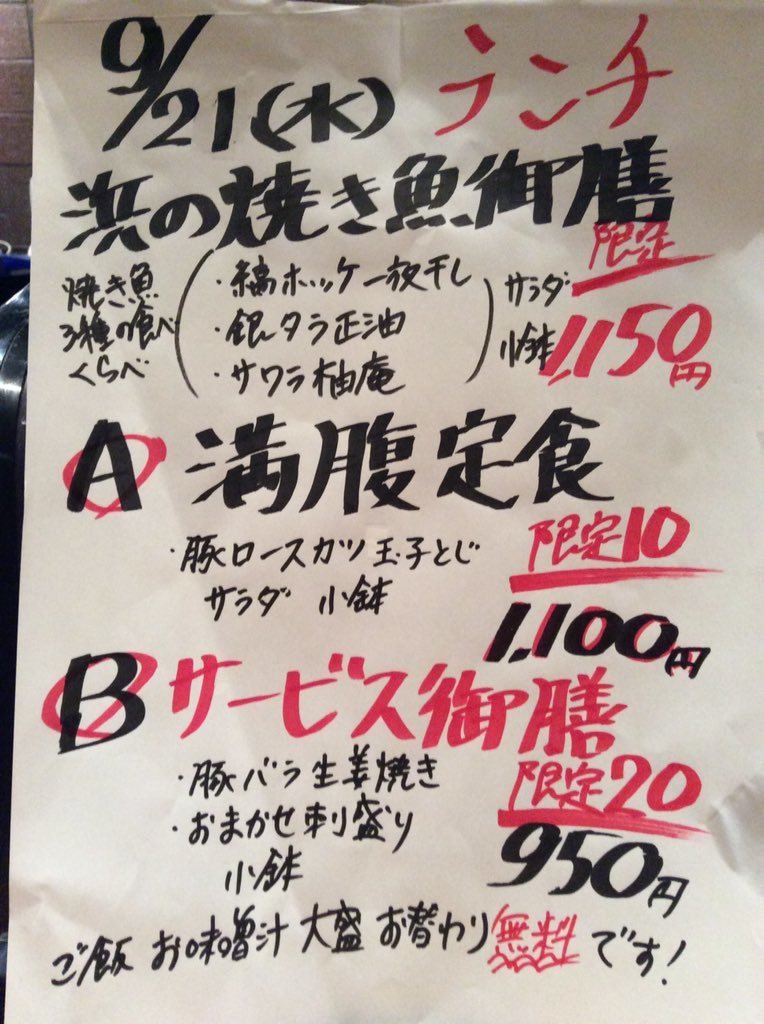 9/21(水) ランチ
浜の焼き魚御膳
限定
焼き魚
3種の食べ
くらべ
・縞ホッケ一夜干し
・銀タラ正油
・サワラ柚庵
サラダ
小鉢
1,150円
A 満腹定食
・豚ロースカツ玉子とじ
サラダ 小鉢
限定10
1,100円
B サービス御膳
・豚バラ生姜焼き
・おまかせ刺盛り
小鉢
限定20
950円
ご飯 お味噌汁 大盛 お替わり無料です!